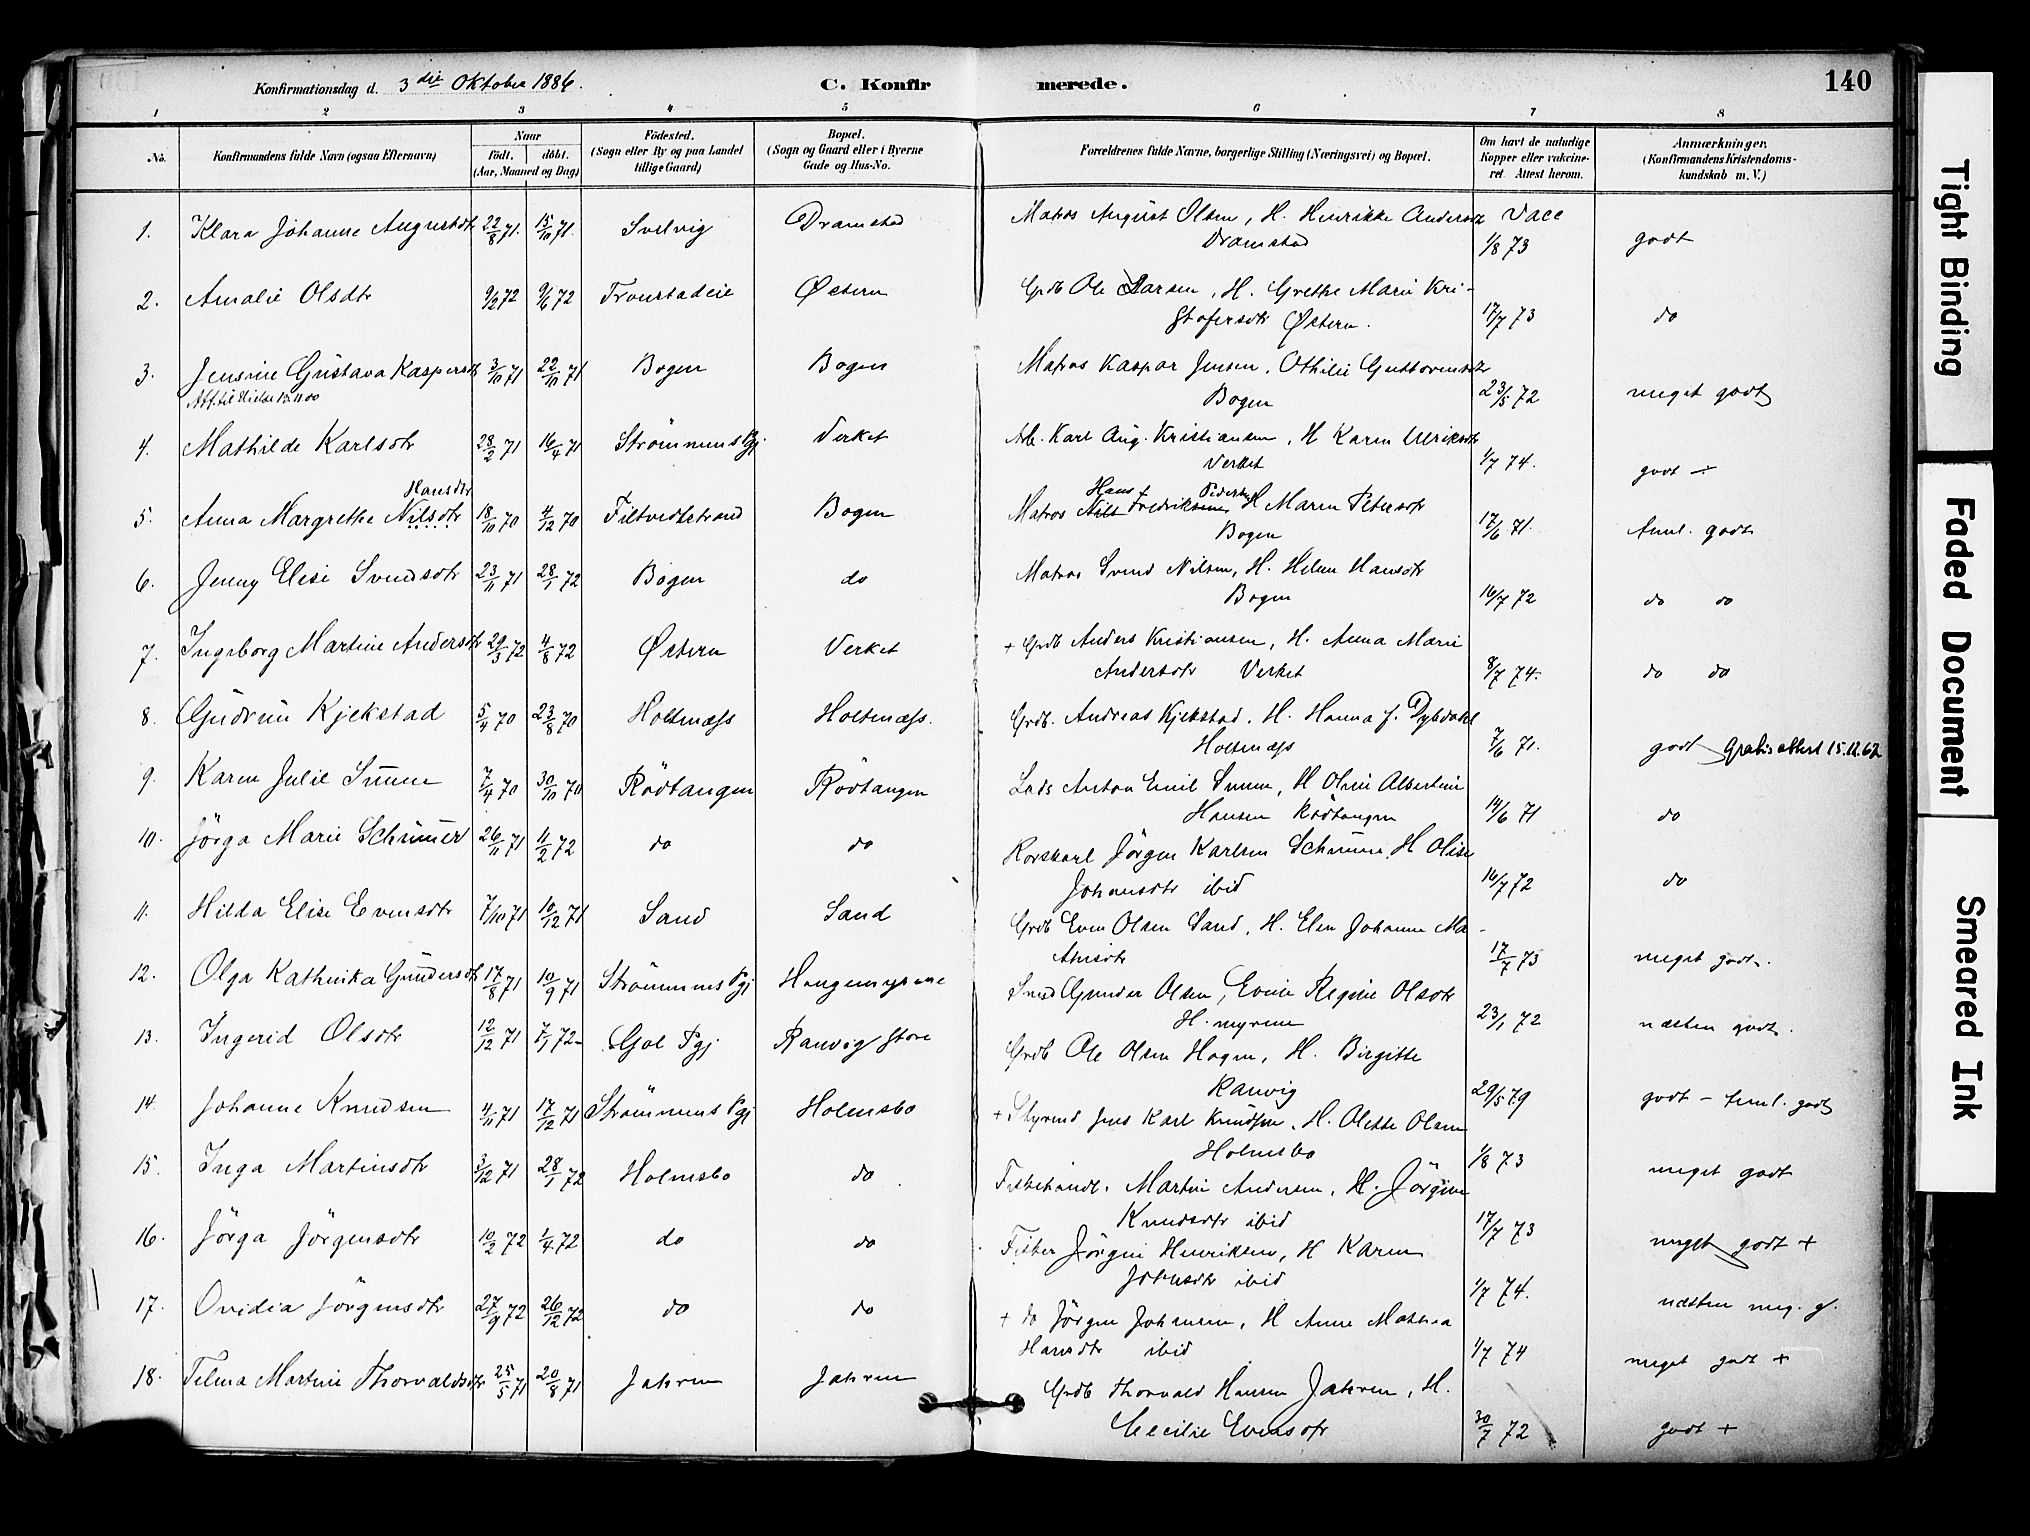 Konfirmationsdag d. 3die Oktober 1886.
C. Konfirmerede.
140
1 2 3 4 5 6 7 8
No.
Konfirmandens fulde Navn (ogsaa Efternavn)
Naar
født. døbt.
(Aar, Maaned og Dag)
Fødested.
(Sogn eller By og paa Landet tillige Gaard)
Bopæl.
(Sogn og Gaard eller i Byerne Gade og Hus-No.
Forældrenes fulde Navne, borgerlige Stilling (Næringsvei) og Bopæl.
Om havt de naturlige Kopper eller vakcineret. Attest herom.
Anmærkninger.
(Konfirmandens Kristendomskundskab m. V.)
1. Klara Johanne Augustdtr 22/8 71. 15/10 71. Svelvig Dramstad Matros August Olsen, H. Henrikke Andersdtr Vacc
Dramstad 1/8 73 godt
2. Amalie Olsdtr 9/2 72 9/6 72 Tronstadeie Østern Grdb Ole Larsen, H. Grethe Marie Kri-
stofersdtr Østern. 17/7 73 do
3. Jensine Gustava Kaspersdtr 3/10 71 22/10 71 Bogen Bogen Matros Kaspar Jensen, Othilie Gustavensdtr
Bogen 23/5 72 meget godt
4. Mathilde Karlsdtr 28/2 71 16/4 71 Strømmens Pgj. Verket Arb. Karl Aug. Kristiansen, H Karen Ulriksdtr
Verket 1/7 74. godt ÷
Hansdtr Hans Pedersen
5. Anna Margrethe Nilsdtr 18/10 70 4/12 70 Filtvedtstrand Bogen Matros Nils Fredriksen, H Maren Petersdtr
Bogen 17/6 71. temml. godt
6. Jenny Elise Svendsdtr 23/11 71 28/1 72 Bogen do Matros Svend Nilsen, H. Helene Hansdtr
Bogen 16/7 72 do do
7. Ingeborg Martine Andersdtr 29/3 72 4/8 72 Østern Verket + Grdb Anders Kristiansen, H. Anna Marie
Andersdtr Verket 8/7 74. do do
8. Gudrun Kjekstad 5/4 70 23/8 70 Holtnæss Holtnæss. Grdb. Andreas Kjekstad. H. Hanna f. Dybdahl
Holtnæss 7/6 71. godt Gratisattest 15.12.62
9. Karen Julie Simen 7/4 70 30/10 70 Rödtangen Rödtangen Lods Anton Emil Simen, H Oline Albertine
Hansen Rödtangen 14/6 71 do
10. Jörga Marie Schimer 26/11 71 11/2 72 do do Rorskarl Jörgen Karlsen Schimer, H Olise
Johansdtr ibid 16/7 72 do
11. Hilda Elise Evensdtr 7/10 71 10/12 71 Sand Sand Grdb Even Olsen Sand, H. Elen Johanne Ma-
thisdtr 17/7 73 meget godt.
12. Olga Kathinka Gundersdtr 17/8 71 10/9 71 Strømmens Pgj Haugemyrene Smed Gunder Olsen, Evine Regine Olsdtr
H. myrene 23/1 72 næsten godt.
13. Ingerid Olsdtr 12/12 71 7/1 72 Gol Pgj Ranvig store Grdb Ole Olsen Hagen, H. Birgitte
Ranvig 29/5 79 godt – teml. godt
14. Johanne Knudsen 4/11 71 17/12 71 Strømmens Pgj Holmsbo + Styrmd Jens Karl Knudsen, H. Olette Olsen
Holmsbo 1/8 73
15. Inga Martinsdtr 3/12 71 28/1 72 Holmsbo do Fiskehandl. Martin Andersen, H. Jörgine meget godt
Knudsdtr ibid 17/7 73
16. Jörga Jörgensdtr 10/2 72 1/4 72 do do Fisker Jörgen Henriksen, H Karen meget godt +
Johnsdtr ibid 1/7 74.
17. Ovidia Jörgensdtr 27/9 72 26/12 72 do do + do Jörgen Johnsen, H Anne Mathea næsten meg. g.
Hansdtr ibid 1/7 74 meget godt +
18. Telma Martine Thorvaldsdtr 25/5 71 20/8 71 Jahren Jahren Grdb Thorvald Hansen Jahren, H.
Cecilie Evensdtr 30/7 72 godt +
Tight Binding
Faded Document
Smeared Ink